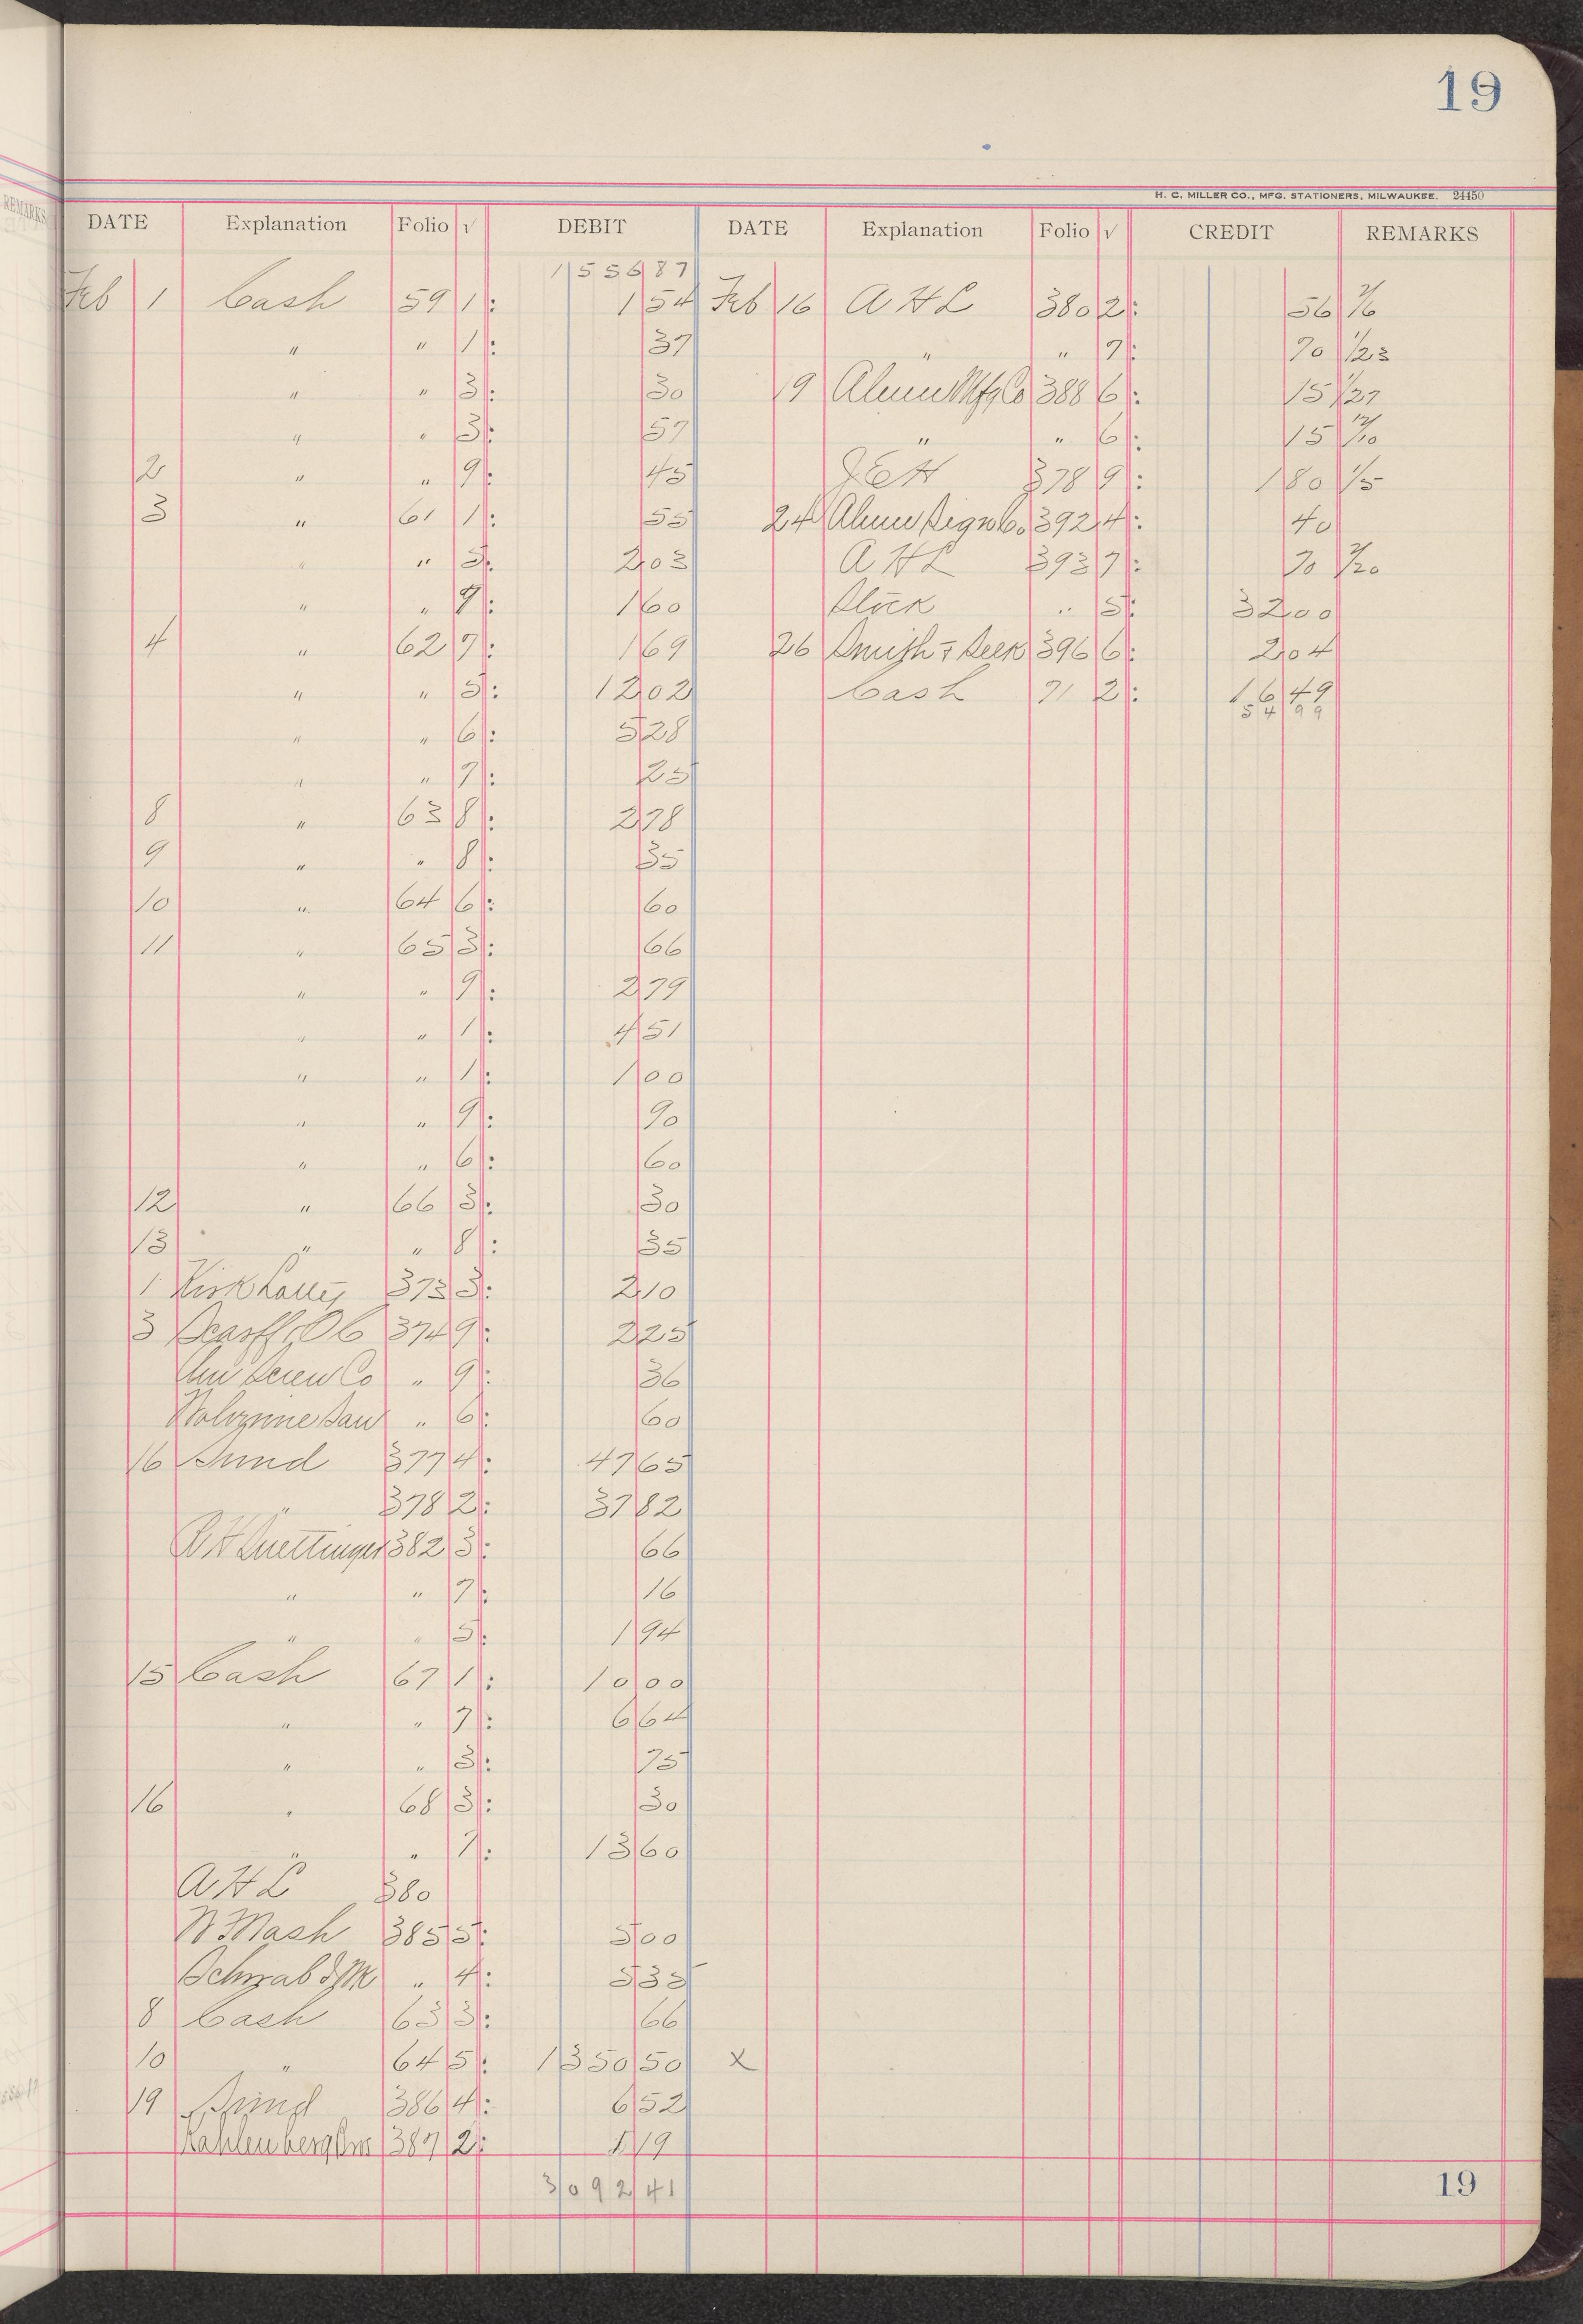 19
H. C. MILLER CO., MFG. STATIONERS, MILWAUKEE. 24450
REMARKS
DATE Explanation Folio √ DEBIT DATE Explanation Folio √ CREDIT REMARKS
1556 87
Feb 1 Cash 59 1: 1 54 Feb 16 A H L 380 2: 56 2/6
" " 1: 37 " " 7: 70 1/23
" " 3: 30 19 Alum Mfg Co 388 6: 15 1/27
" " 3: 57 " " 6: 15 12/10
2 " " 9: 45 J E H 378 9: 1 80 1/5
3 " 61 1: 55 24 Alum Sign Co. 392 4: 40
" " 5: 2 03 A H L 393 7: 70 2/20
" " 9: 1 60 Stock " 5: 32 00
4 " 62 7: 1 69 26 Smith & Seek 396 6: 2 04
" " 5: 12 02 Cash 71 2: 16 49
54 99
" " 6: 5 28
" " 7: 25
8 " 63 8: 2 78
9 " " 8: 35
10 " 64 6: 60
11 " 65 3: 66
" " 9: 2 79
" " 1: 4 51
" " 1: 1 00
" " 9: 90
" " 6: 60
12 " 66 3: 30
13 " " 8: 35
1 Kirk 373 3: 2 10
3 Scarff & O C 374 9: 2 25
Am Screw Co " 9: 36
Wolverine Saw " 6: 60
16 Sund 377 4: 47 65
" 378 2: 37 82
R H Suettinger 382 3: 66
" " 7: 16
" " 5: 1 94
15 Cash 67 1: 10 00
" " 7: 6 64
" " 3: 75
16 " 68 3: 30
" " 7: 13 60
A H L 380
W F Nash 385 5: 5 00
Schwab " 4: 5 35
8 Cash 63 3: 66
10 " 64 5: 1350 50 x
19 Sund 386 4: 6 52
Kahlenberg Bros 387 2: 1 19
3092 41
19